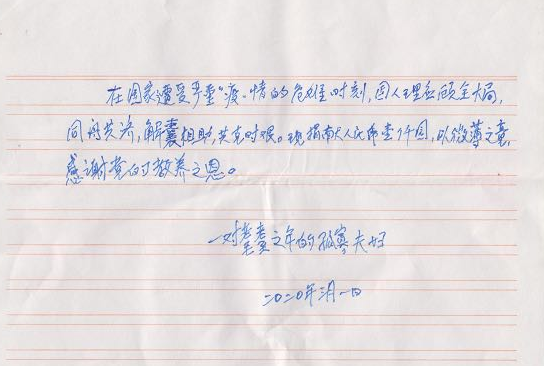 在国家遭受严重“疫”情的危难时刻,国人理应顾全大局,
同舟共济,解囊相助,共克时艰。现捐献人民币壹仟圆,以微薄之意,
感谢党的教养之恩。
一对耄耋之年的孤寡夫妇
二〇二〇年三月一日